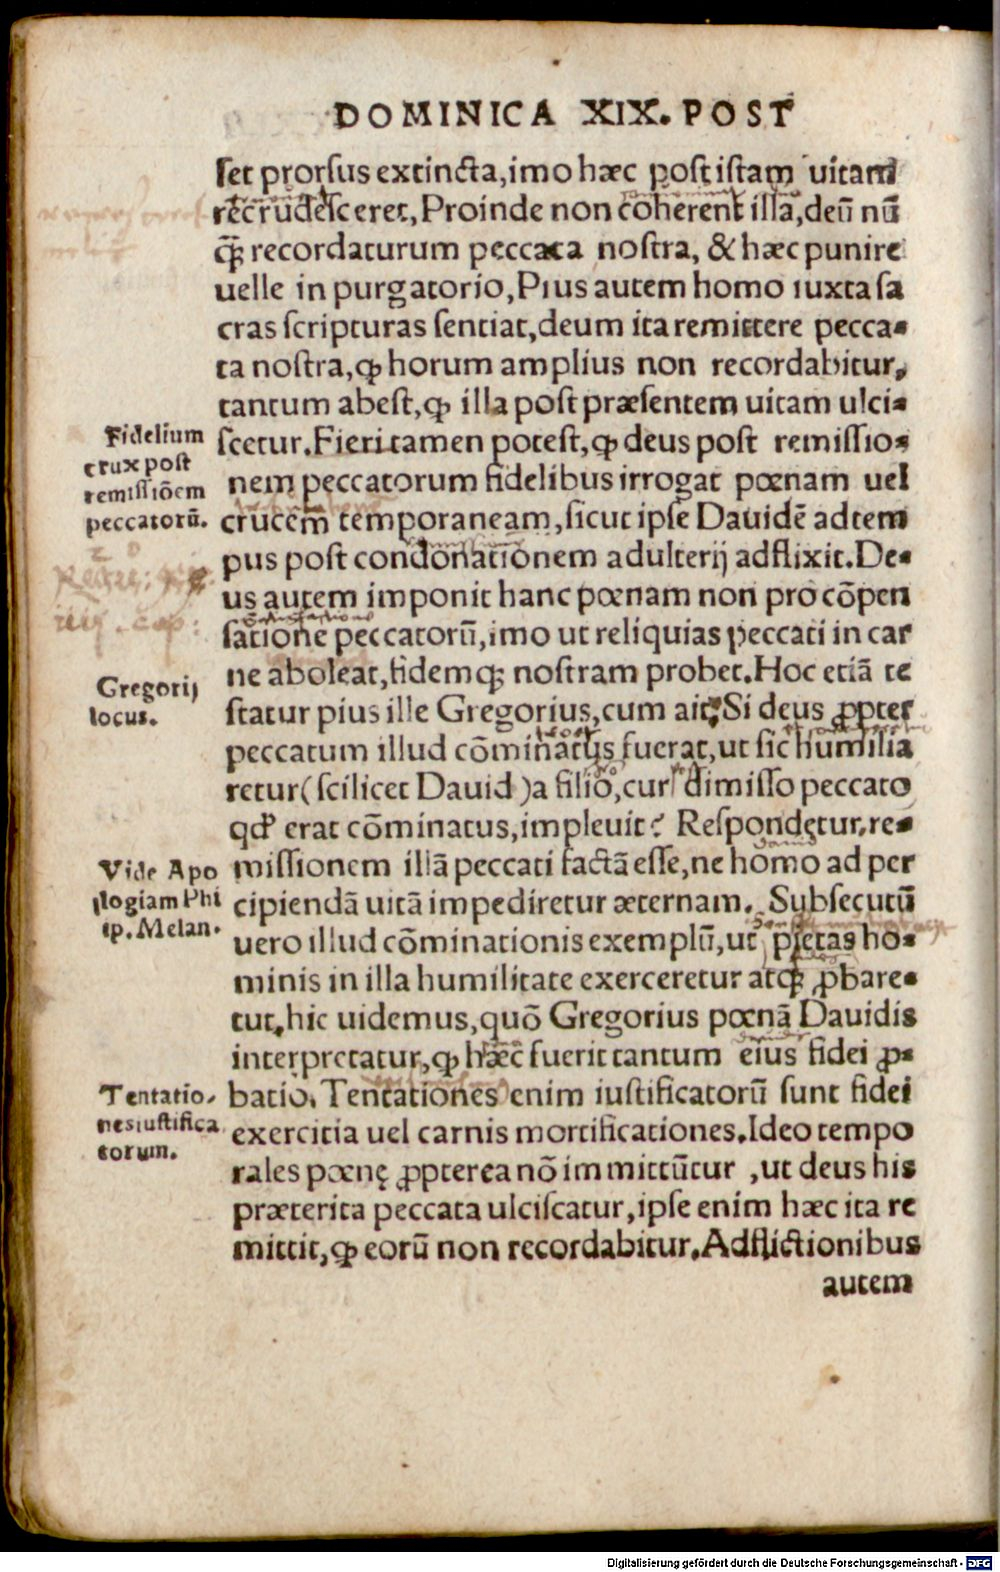 DOMINICA XIX. POST
set prorsus extincta, imo hæc post istam uitam
recrudesceret, Proinde non coherent illa, deū nū
q̄ꝫ recordaturum peccata nostra, & hæc punire
uelle in purgatorio, Pius autem homo iuxta sa
cras scripturas sentiat, deum ita remittere pecca-
ta nostra, ꝙ horum amplius non recordabitur,
tantum abest, ꝙ illa post præsentem uitam ulci-
scetur. Fieri tamen potest, ꝙ deus post remissio-
nem peccatorum fidelibus irrogat pœnam uel
crucem temporaneam, sicut ipse Dauidē ad tem
pus post condonationem adulterij adflixit. De-
us autem imponit hanc pœnam non pro cōpen
satione peccatorū, imo ut reliquias peccati in car
ne aboleat, fidemqꝫ nostram probet. Hoc etiā te
statur pius ille Gregorius, cum ait: Si deus ꝓpter
peccatum illud cōminatus fuerat, ut sic humilia
retur (scilicet Dauid) a filio, cur dimisso peccato
qđ erat cōminatus, impleuit? Respondetur, re-
missionem illā peccati factā esse, ne homo ad per
cipiendā uitā impediretur æternam. Subsecutū
uero illud cōminationis exemplū, ut pietas ho-
minis in illa humilitate exerceretur atqꝫ ꝓbare-
tur, hic uidemus, quō Gregorius pœnā Dauidis
interpretatur, ꝙ hæc fuerit tantum eius fidei ꝓ-
batio. Tentationes enim iustificatorū sunt fidei
exercitia uel carnis mortificationes. Ideo tempo
rales pœnę ꝓpterea nō immittūtur , ut deus his
præterita peccata ulciscatur, ipse enim hæc ita re
mittit, ꝙ eorū non recordabitur. Adflictionibus
autem
Fidelium
crux post
remissiōem
peccatorū.
Gregorij
locus.
Vide Apo
logiam Phi
ip. Melan.
Tentatio-
nes iustifica
torum.
Digitalisierung gefördert durch die Deutsche Forschungsgemeinschaft - DFG